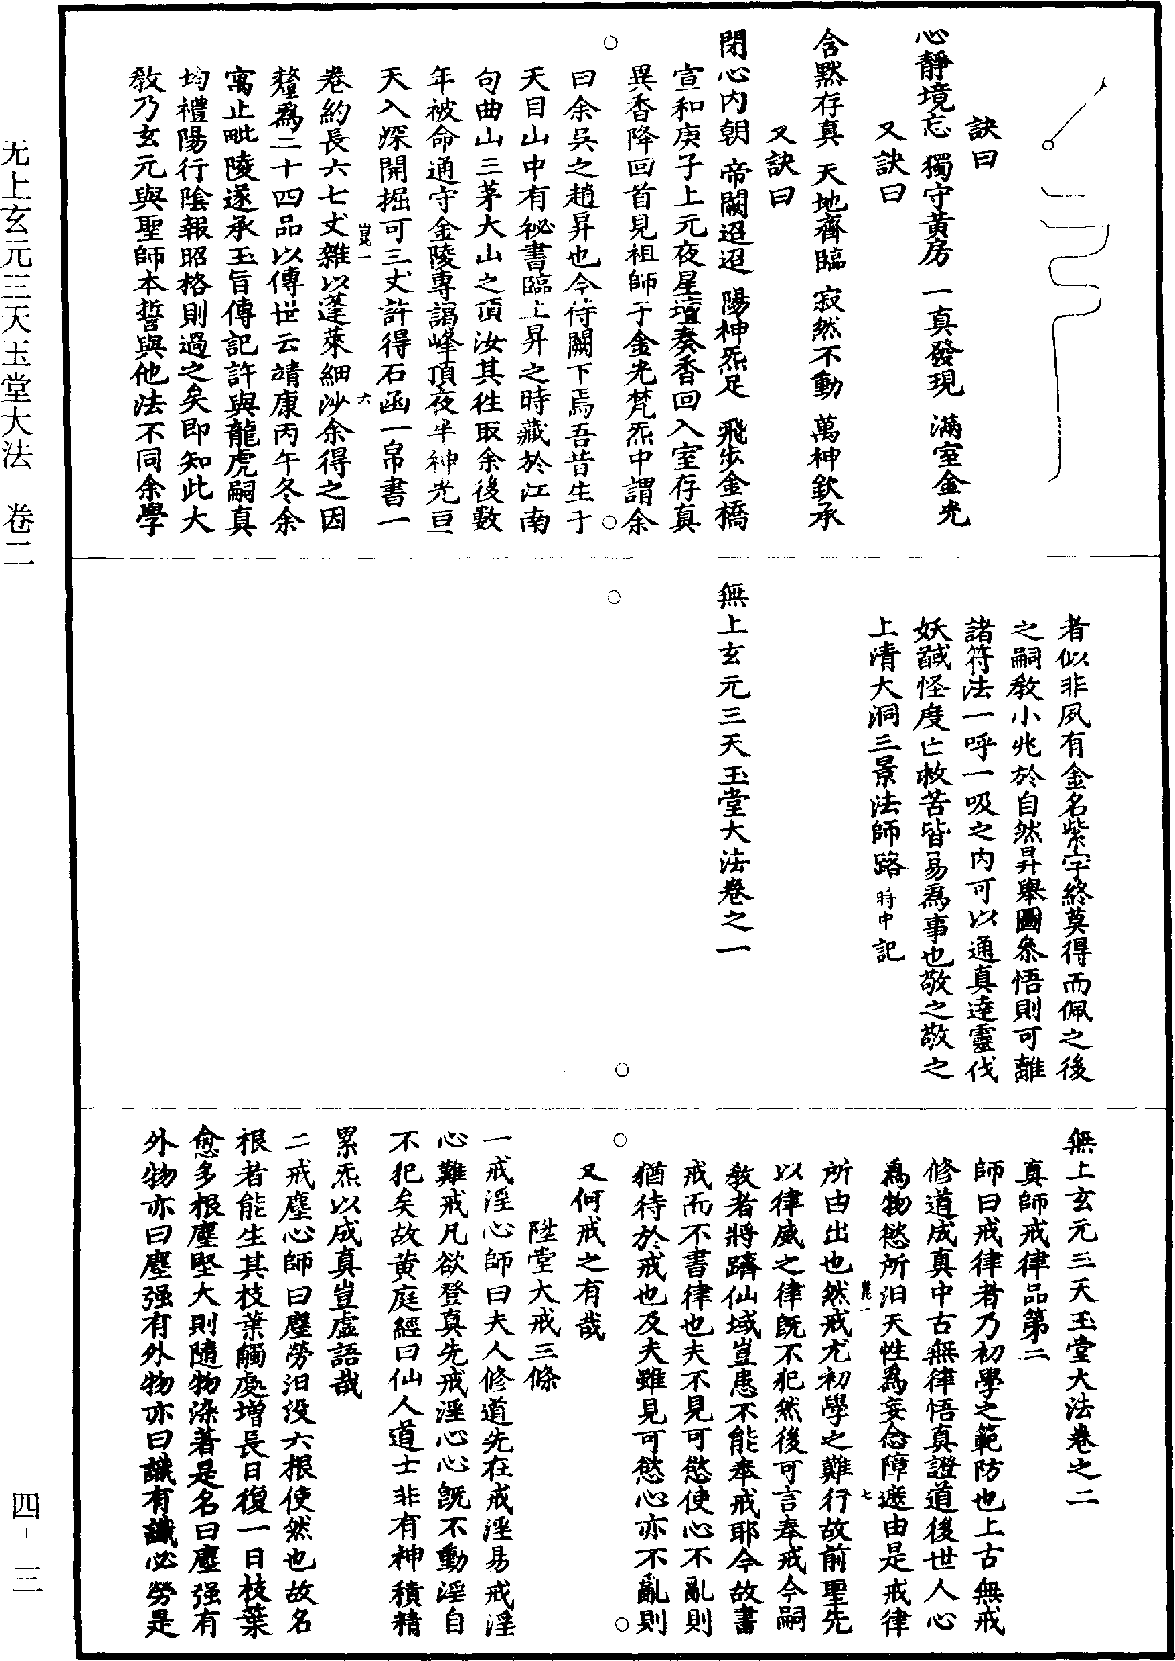 訣曰
心靜境忘　獨守黃房　一真發現　滿室金光
又訣曰
含默存真　天地齊臨　寂然不動　萬神欽承
又訣曰
閉心內朝　帝闕迢迢　陽神炁足　飛步金橋
宣和庚子上元夜星壇奏香回入室存真
異香降回首見祖師于金光梵炁中謂余
曰余吳之趙昇也今待闕下焉吾昔生于
天目山中有秘書臨上昇之時藏於江南
句曲山三茅大山之頂汝其往取余後數
年被命通守金陵專謁峰頂夜半神光亘
天入深開掘可三丈許得石函一帛書一
卷約長六七丈雜以蓬萊細沙余得之因
釐為二十四品以傳世云靖康丙午冬余
寓止毗陵遂承玉旨傳記許與龍虎嗣真
均禮陽行陰報昭格則過之矣即知此大
教乃玄元與聖師本誓與他法不同余學
者似非夙有金名紫字終莫得而佩之後
之嗣教小兆於自然昇舉圖參悟則可離
諸符法一呼一吸之內可以通真達靈伐
妖馘怪度亡救苦皆易為事也敬之敬之
上清大洞三景法師路時中記
無上玄元三天玉堂大法卷之一
無上玄元三天玉堂大法卷之二
真師戒律品第二
師曰戒律者乃初學之範防也上古無戒
修道成真中古無律悟真證道後世人心
為物慾所汨天性為妄念障遮由是戒律
所由出也然戒尤初學之難行故前聖先
以律威之律既不犯然後可言奉戒今嗣
教者將躋仙域豈患不能奉戒耶今故書
戒而不書律也夫不見可慾使心不亂則
猶待於戒也及夫雖見可慾心亦不亂則
又何戒之有哉
陞堂大戒三條
一戒淫心師曰夫人修道先在戒淫易戒淫
心難戒凡欲登真先戒淫心心既不動淫自
不犯矣故黃庭經曰仙人道士非有神積精
累炁以成真豈虛語哉
二戒塵心師曰塵勞汨沒六根使然也故名
根者能生其枝葉觸處增長日復一日枝葉
愈多根塵堅大則隨物染著是名曰塵强有
外物亦曰塵强有外物亦曰識有識必勞是
无上玄元三天玉堂大法　卷二
四-三